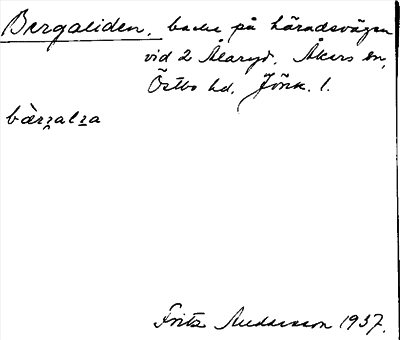 Bergaliden, backe på häradsvägen
vid 2 Alaryd. Åkers sn,
Östbo hd. Jönk. l.
bærꝛalꝛa
Fritz Andersson 1937.